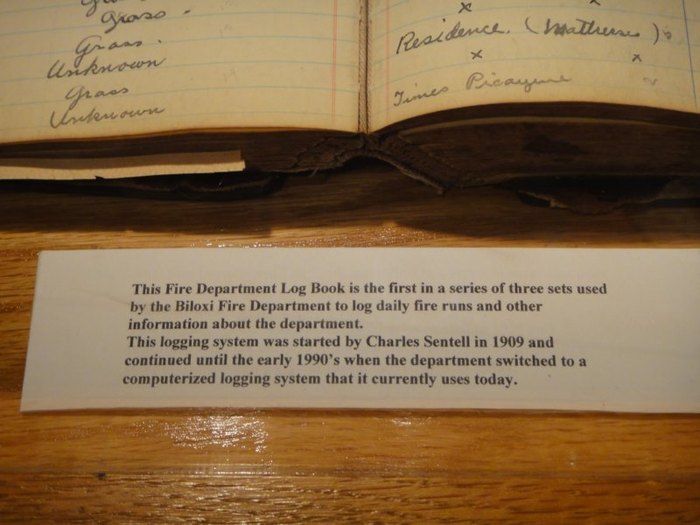 Grass
Grass.
Unknown
Grass
Unknown
x
Residence. (Mattress)
x x
Times Picayune
This Fire Department Log Book is the first in a series of three sets used
by the Biloxi Fire Department to log daily fire runs and other
information about the department.
This logging system was started by Charles Sentell in 1909 and
continued until the early 1990's when the department switched to a
computerized logging system that it currently uses today.